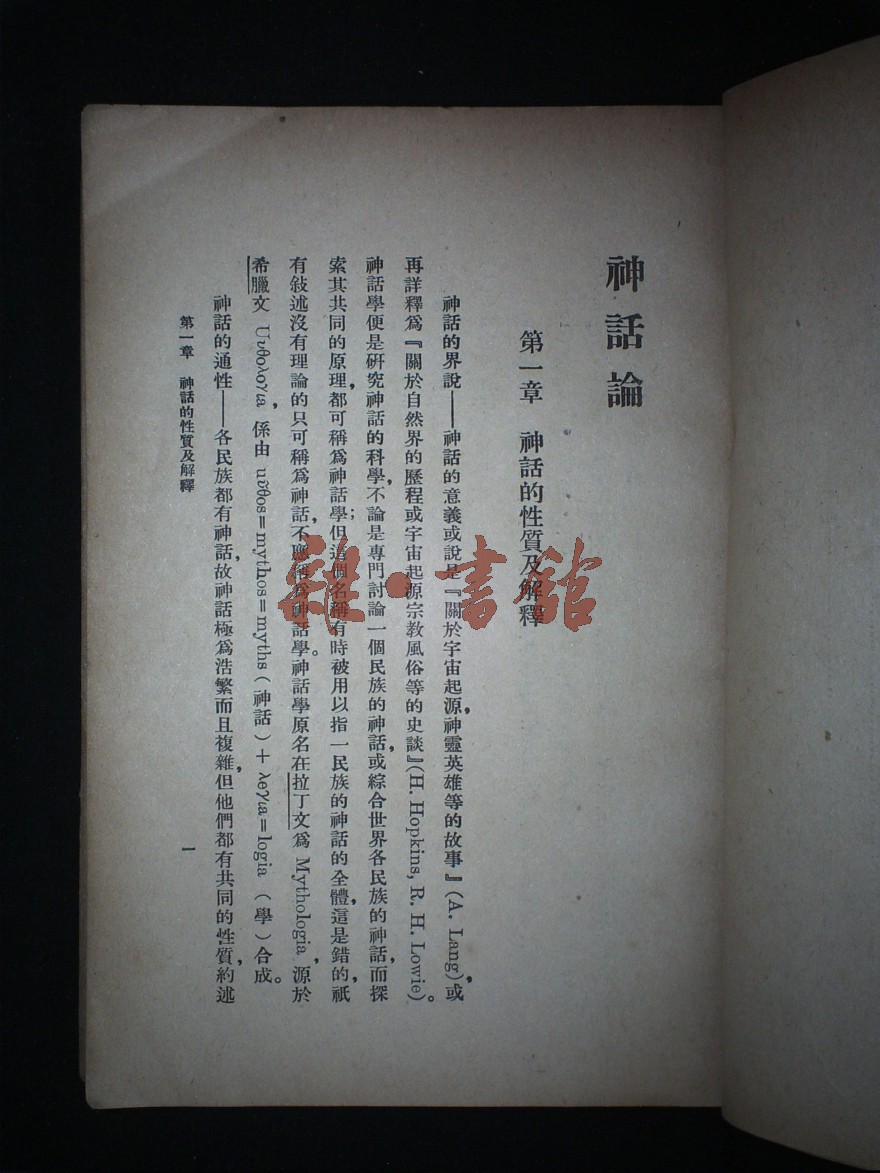 神話論
第一章 神話的性質及解釋
神話的界說——神話的意義或說是『關於宇宙起源，神靈英雄等的故事』(A. Lang)，或
再詳釋爲『關於自然界的歷程或宇宙起源宗教風俗等的史談』(H. Hopkins, R. H. Lowie)。
神話學便是研究神話的科學，不論是專門討論一個民族的神話，或綜合世界各民族的神話，而探
索其共同的原理，都可稱爲神話學；但這個名稱有時被用以指一民族的神話的全體，這是錯的，祇
有敍述沒有理論的只可稱爲神話，不應稱爲神話學。神話學原名在拉丁文爲 Mythologia，源於
希臘文 Uυθoλoγιa，係由 uῦθos=mythos=myths（神話）＋λeγιa=logia（學）合成。
神話的通性——各民族都有神話，故神話極爲浩繁而且複雜，但他們都有共同的性質，約述
第一章 神話的性質及解釋
一
雜·書館